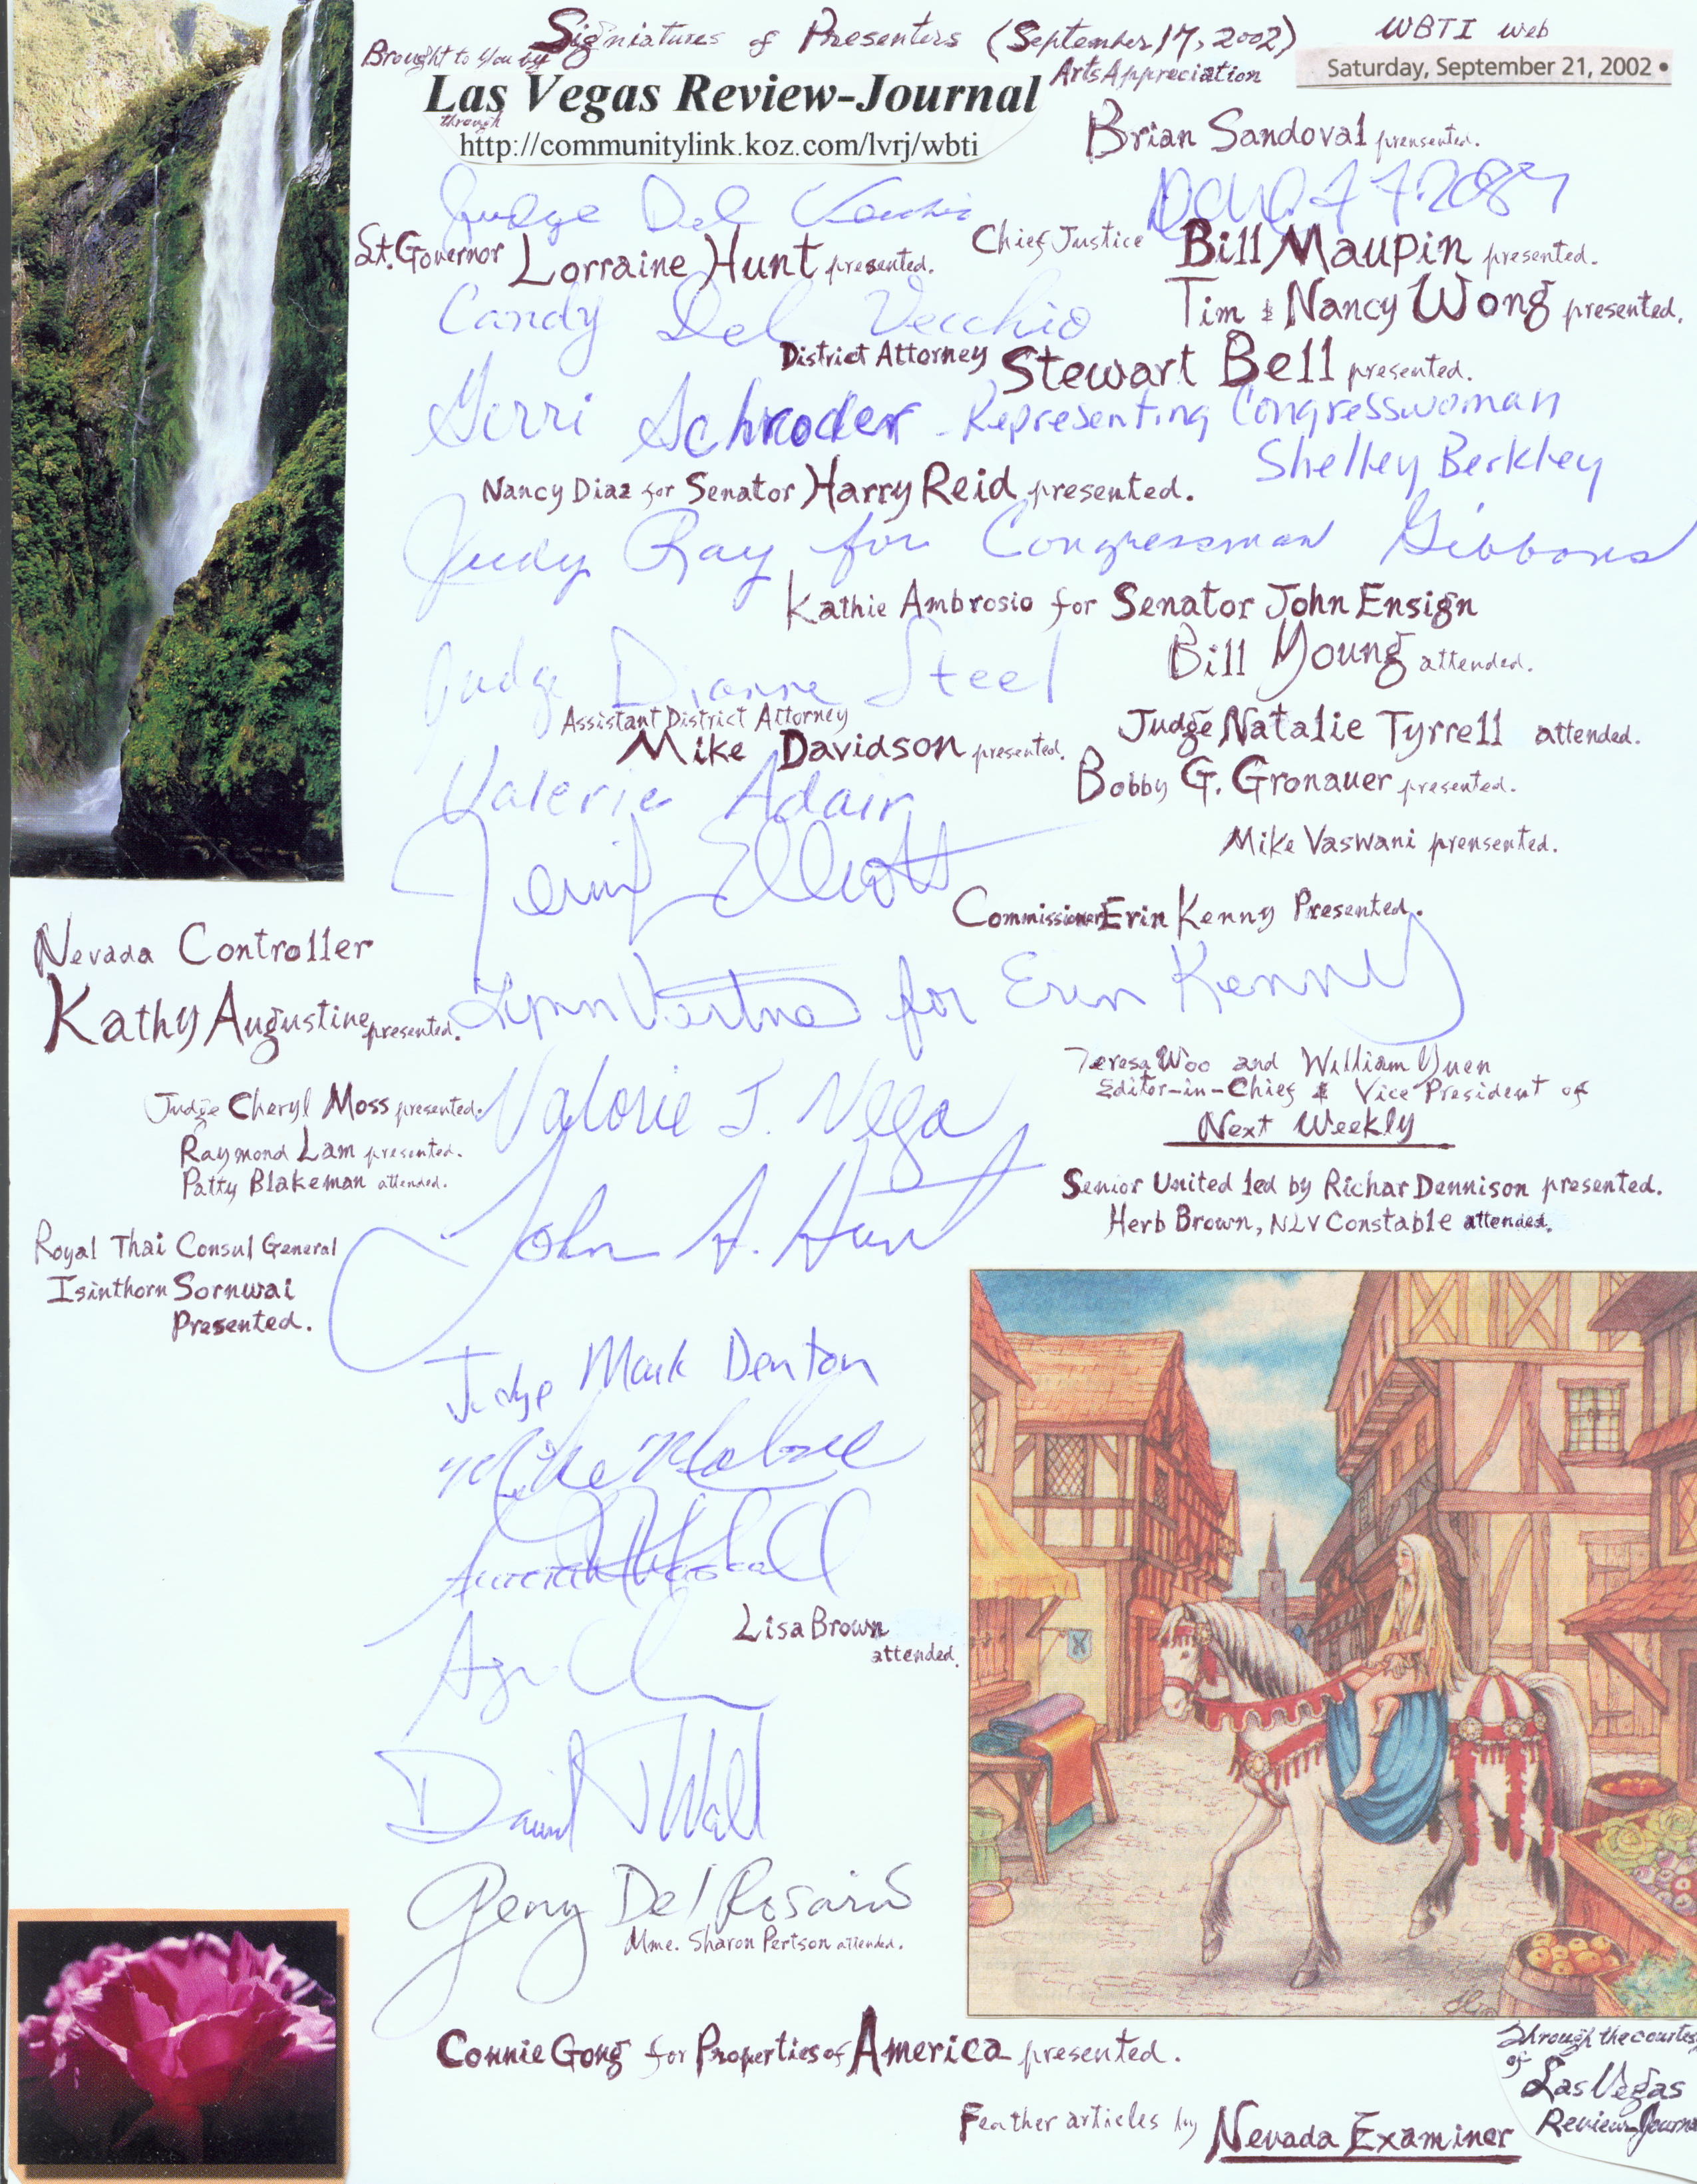 Signiatures of Presenters (September 17, 2002)
WBTI web
Brought to You by
Arts Appreciation
Saturday, September 21, 2002 •
Las Vegas Review-Journal
through
http://communitylink.koz.com/lvrj/wbti
Brian Sandoval prensented.
Judge Del Vecchio
Lt. Governor Lorraine Hunt presented.
Chief Justice Bill Maupin presented.
Candy Del Vecchio
Tim & Nancy Wong presented.
District Attorney Stewart Bell presented.
Gerri Schroder - Representing Congresswoman
Shelley Berkley
Nancy Diaz for Senator Harry Reid presented.
Judy Ray for Congressman Gibbons
Kathie Ambrosio for Senator John Ensign
Bill Young attended.
Judge Dianne Steel
Assistant District Attorney
Mike Davidson presented.
Judge Natalie Tyrrell attended.
Valerie Adair
Bobby G. Gronauer presented.
Mike Vaswani prensented.
Elliott
Commissioner Erin Kenny Presented.
Nevada Controller
Kathy Augustine presented.
Lynn for Erin Kenny
Teresa Woo and William Yuen
Editor-in-Chief & Vice President of
Next Weekly
Judge Cheryl Moss presented.
Valorie J. Vega
Raymond Lam presented.
Patty Blakeman attended.
Senior United led by Richar Dennison presented.
Herb Brown, NLV Constable attended.
John A. Hunt
Royal Thai Consul General
Isinthorn Sornwai
Presented.
Judge Mark Denton
Mike
Lisa Brown
attended.
David Wall
Geny Del Rosario
Mme. Sharon Pertson attended.
Connie Gong for Properties of America presented.
Through the courtes
of
Las Vegas
Review-Journa
Feather articles by Nevada Examiner